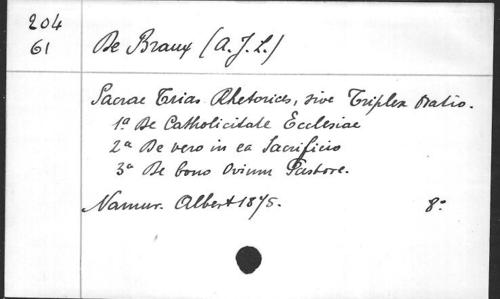 204
61
De Braux (A.J.L.)
Sacrae Trias Rhetorices, sive Triplex Oratio.
1ª De Catholicitate Ecclesiae
2ª De vero in ea Sacrificio
3ª De bono Ovium Pastore.
Namur. Albert 1875. 8º